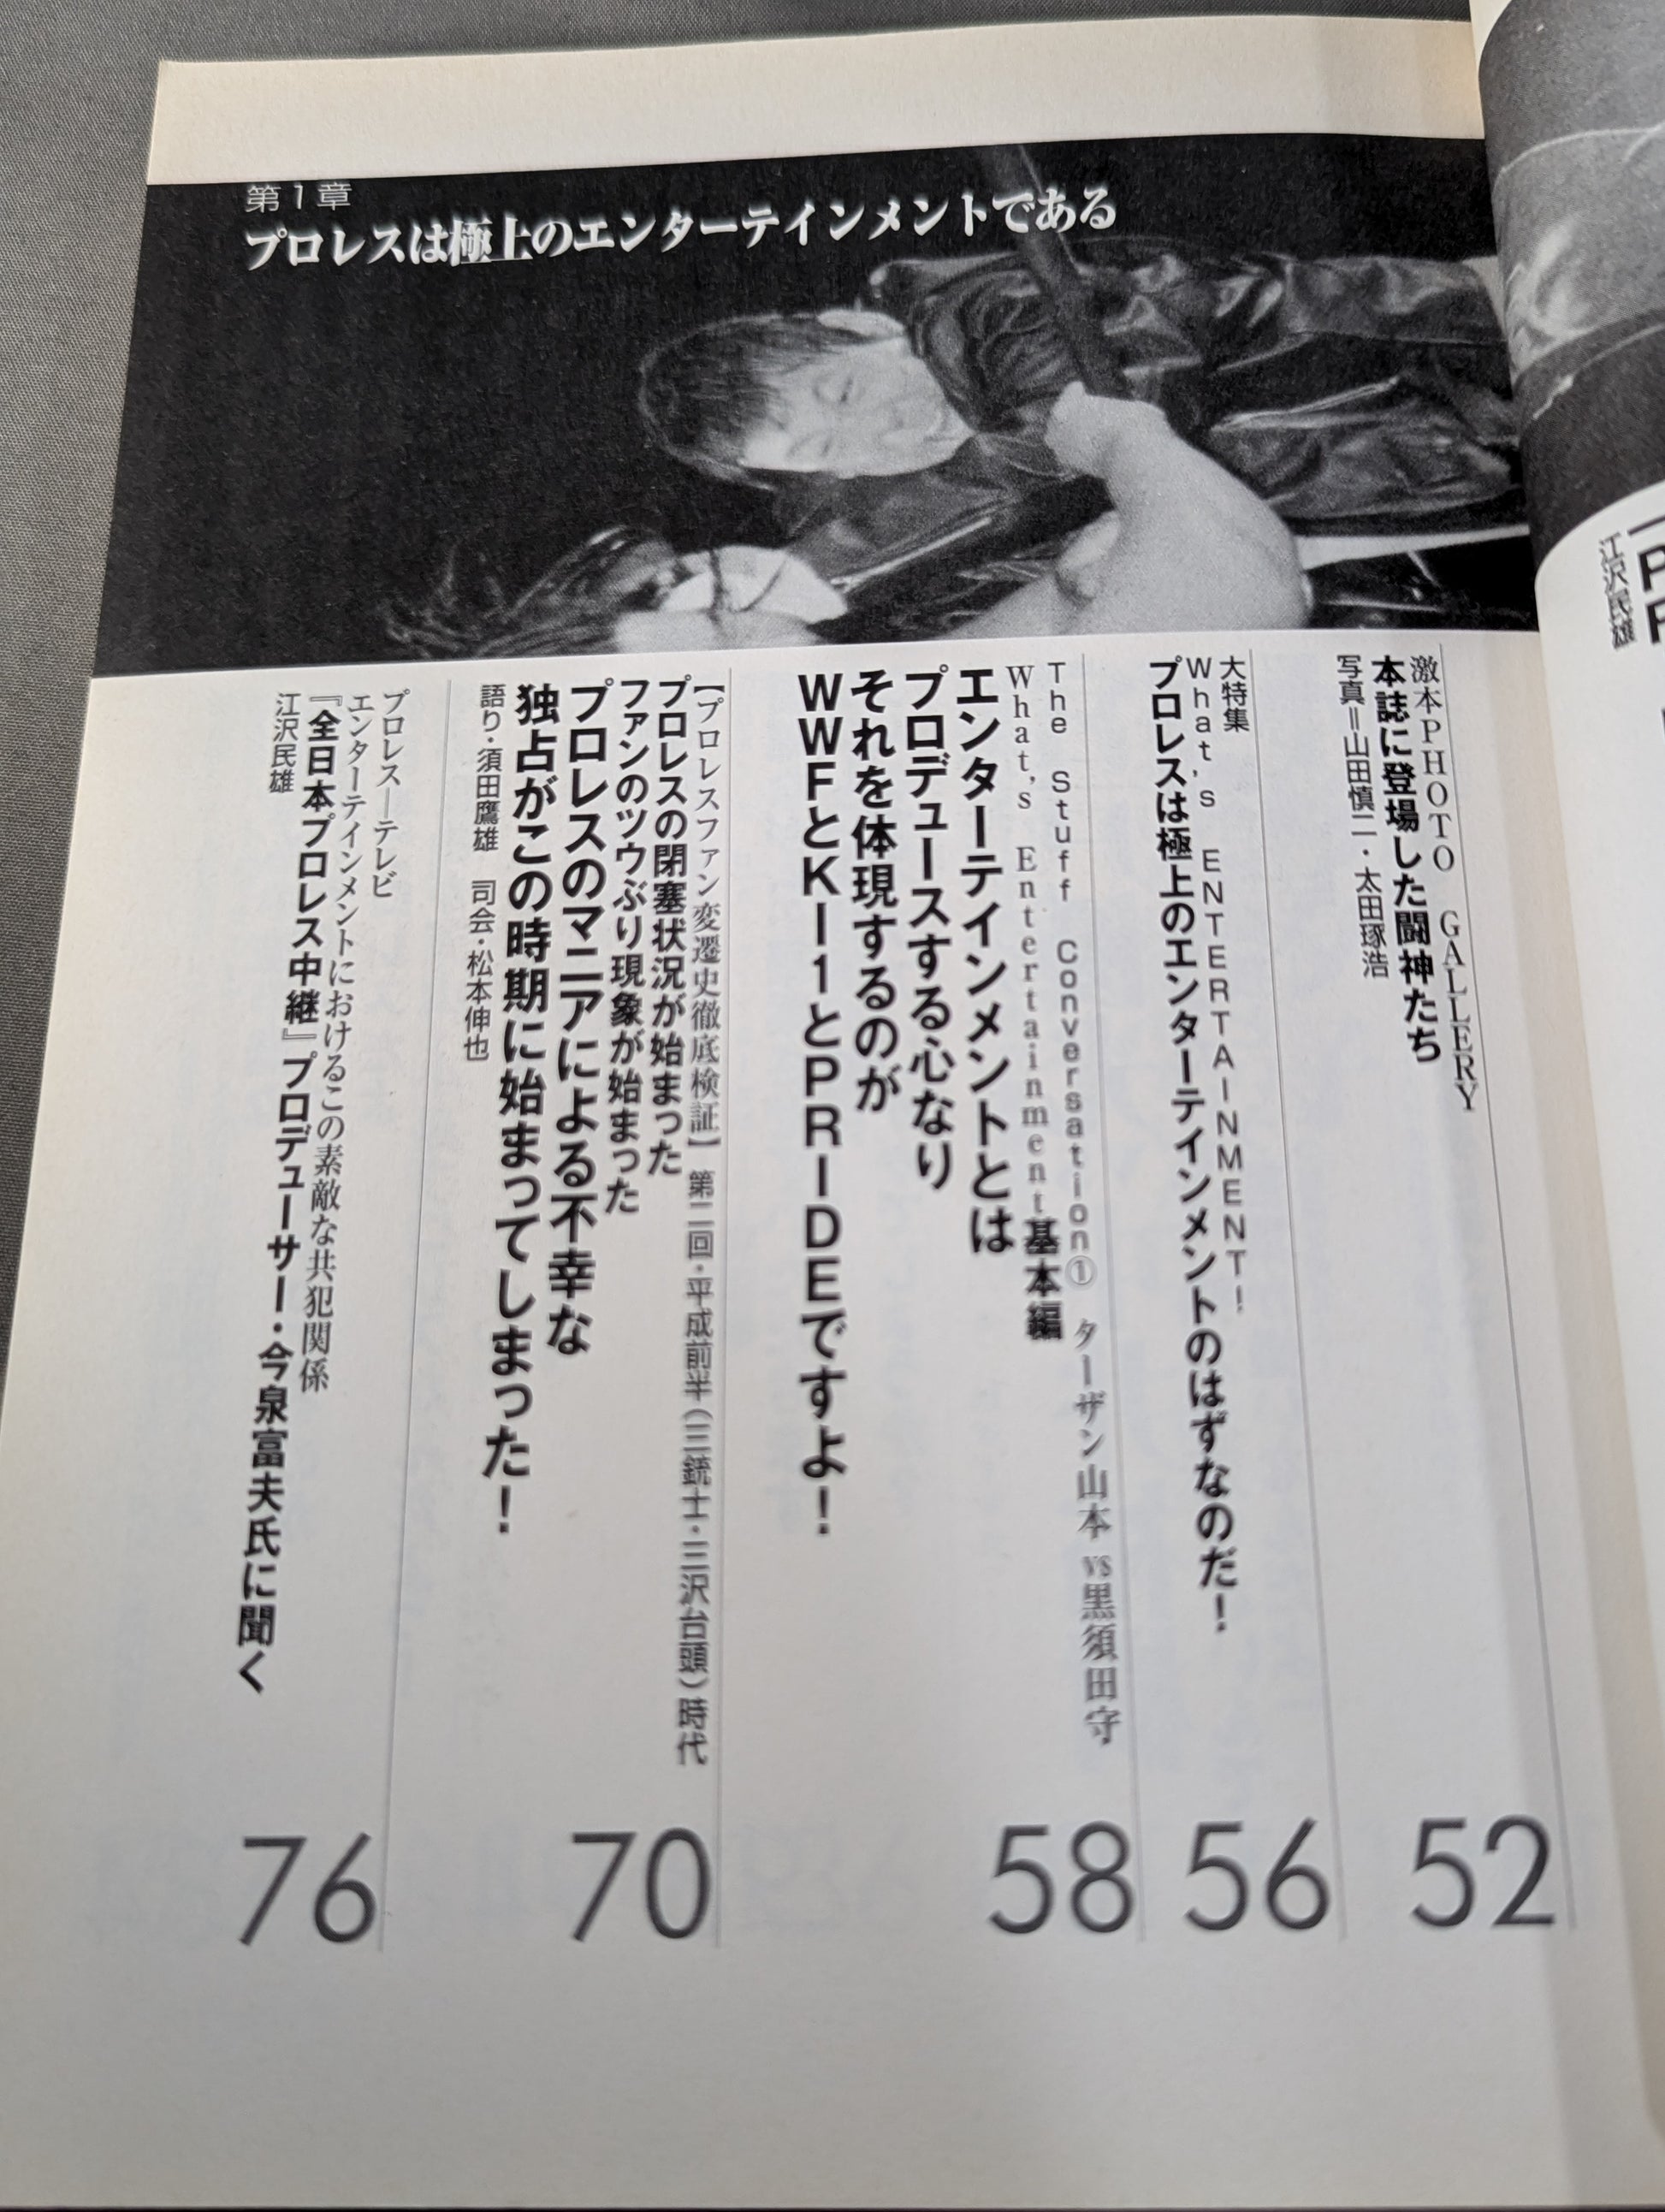 第1章
プロレスは極上のエンターテインメントである
江沢民雄
激本PHOTO GALLERY
本誌に登場した闘神たち
写真=山田慎二・太田琢浩
52
大特集
What's ENTERTAINMENT!
プロレスは極上のエンターテインメントのはずなのだ!
56
The Stuff Conversation① ターザン山本 vs 黒須田守
What's Entertainment基本編
エンターテインメントとは
プロデュースする心なり
それを体現するのが
WWFとK−1とPRIDEですよ!
58
【プロレスファン変遷史徹底検証】 第二回・平成前半(三銃士・三沢台頭)時代
プロレスの閉塞状況が始まった
ファンのツウぶり現象が始まった
プロレスのマニアによる不幸な
独占がこの時期に始まってしまった!
語り・須田鷹雄 司会・松本伸也
70
プロレス―テレビ
エンターテインメントにおけるこの素敵な共犯関係
『全日本プロレス中継』プロデューサー・今泉富夫氏に聞く
江沢民雄
76